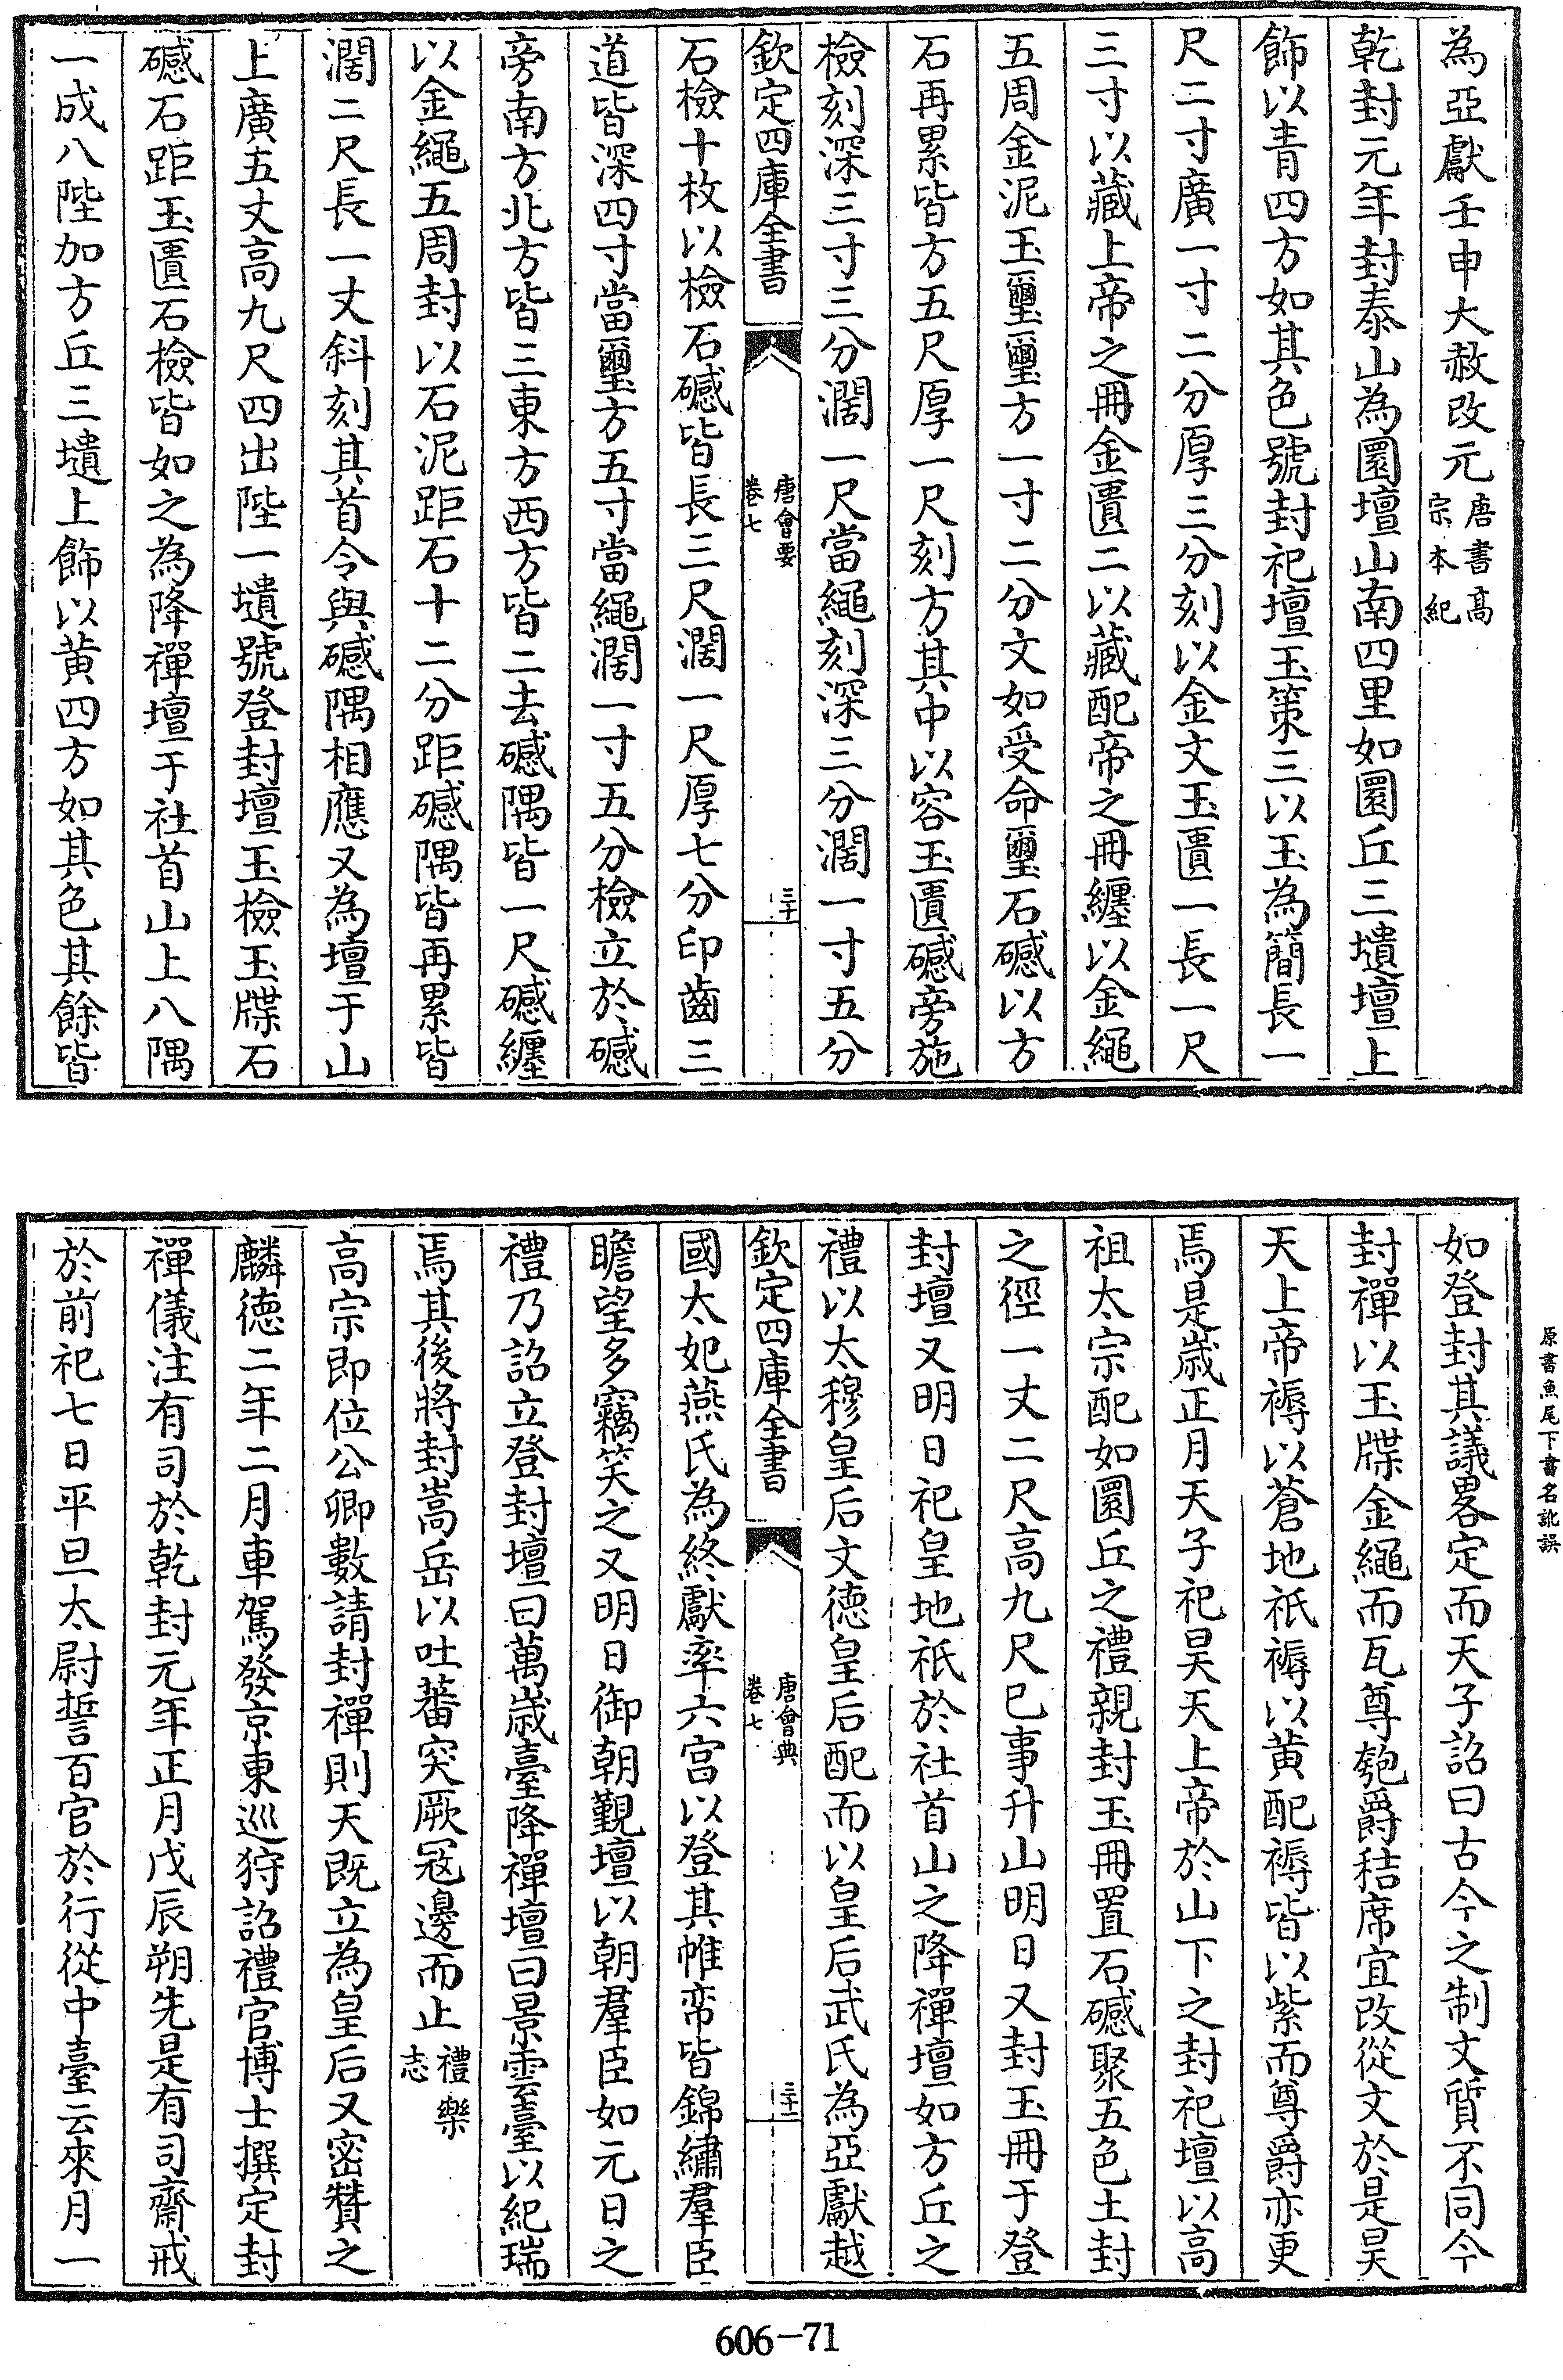 為亞獻壬申大赦改元唐書髙宗本紀
乾封元年封泰山為圜壇山南四里如圜丘三壝壇上
飾以青四方如其色號封祀壇玉策三以玉為簡長一
尺二寸廣一寸二分厚三分刻以金文玉匱一長一尺
三寸以藏上帝之冊金匱二以藏配帝之冊纏以金繩
五周金泥玉璽璽方一寸二分文如受命璽石䃭以方
石再累皆方五尺厚一尺刻方其中以容玉匱䃭旁施
檢刻深三寸三分濶一尺當繩刻深三分濶一寸五分
欽定四庫全書
唐會要
卷七
三十
石檢十枚以檢石䃭皆長三尺濶一尺厚七分印齒三
道皆深四寸當璽方五寸當繩濶一寸五分檢立於䃭
旁南方北方皆三東方西方皆二去䃭隅皆一尺䃭纏
以金繩五周封以石泥距石十二分距䃭隅皆再累皆
濶二尺長一丈斜刻其首令與䃭隅相應又為壇于山
上廣五丈高九尺四出陛一壝號登封壇玉檢玉牒石
䃭石距玉匱石檢皆如之為降禪壇于社首山上八隅
一成八陛加方丘三壝上飾以黄四方如其色其餘皆
如登封其議畧定而天子詔曰古今之制文質不同今
封禪以玉牒金繩而瓦尊匏爵秸席宜改從文於是昊
天上帝褥以蒼地祇褥以黄配褥皆以紫而尊爵亦更
焉是歲正月天子祀昊天上帝於山下之封祀壇以高
祖太宗配如圜丘之禮親封玉冊置石䃭聚五色土封
之徑一丈二尺高九尺已事升山明日又封玉冊于登
封壇又明日祀皇地祇於社首山之降禪壇如方丘之
禮以太穆皇后文德皇后配而以皇后武氏為亞獻越
欽定四庫全書
唐會典
卷七
三十一
國太妃燕氏為終獻率六宫以登其帷帟皆錦繡羣臣
瞻望多竊笑之又明日御朝覲壇以朝羣臣如元日之
禮乃詔立登封壇曰萬歲臺降禪壇曰景雲臺以紀瑞
焉其後將封嵩岳以吐蕃突厥冦邊而止禮樂志
高宗即位公卿數請封禪則天既立為皇后又密贊之
麟德二年二月車駕發京東巡狩詔禮官博士撰定封
禪儀注有司於乾封元年正月戊辰朔先是有司齋戒
於前祀七日平旦太尉誓百官於行從中臺云來月一
原書魚尾下書名訛誤
606—71